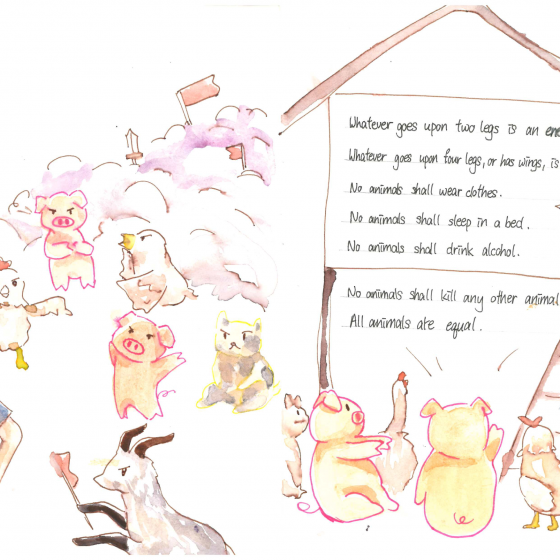 Whatever goes upon two legs is an ene
Whatever goes upon four legs, or has wings, is
No animals shall wear clothes.
No animals shall sleep in a bed.
No animals shall drink alcohol.
No animals shall kill any other animal
All animals are equal.